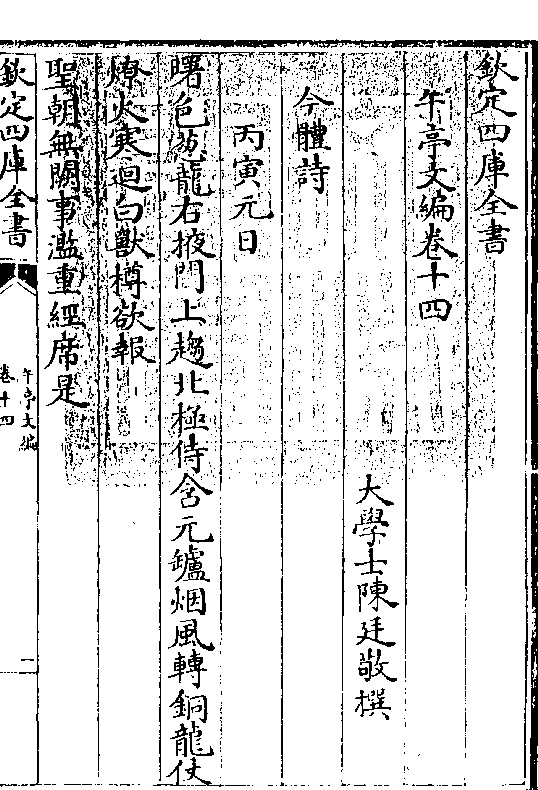 欽定四庫全書
午亭文編卷十四
大學士陳廷敬撰
今體詩
丙寅元日
曙色葱龍右掖門上趨北極侍含元鑪烟風轉銅龍仗
燎火寒迴白獸樽欲報
聖朝無闕事濫重經席是
欽定四庫全書
午亭文編
卷十四
一